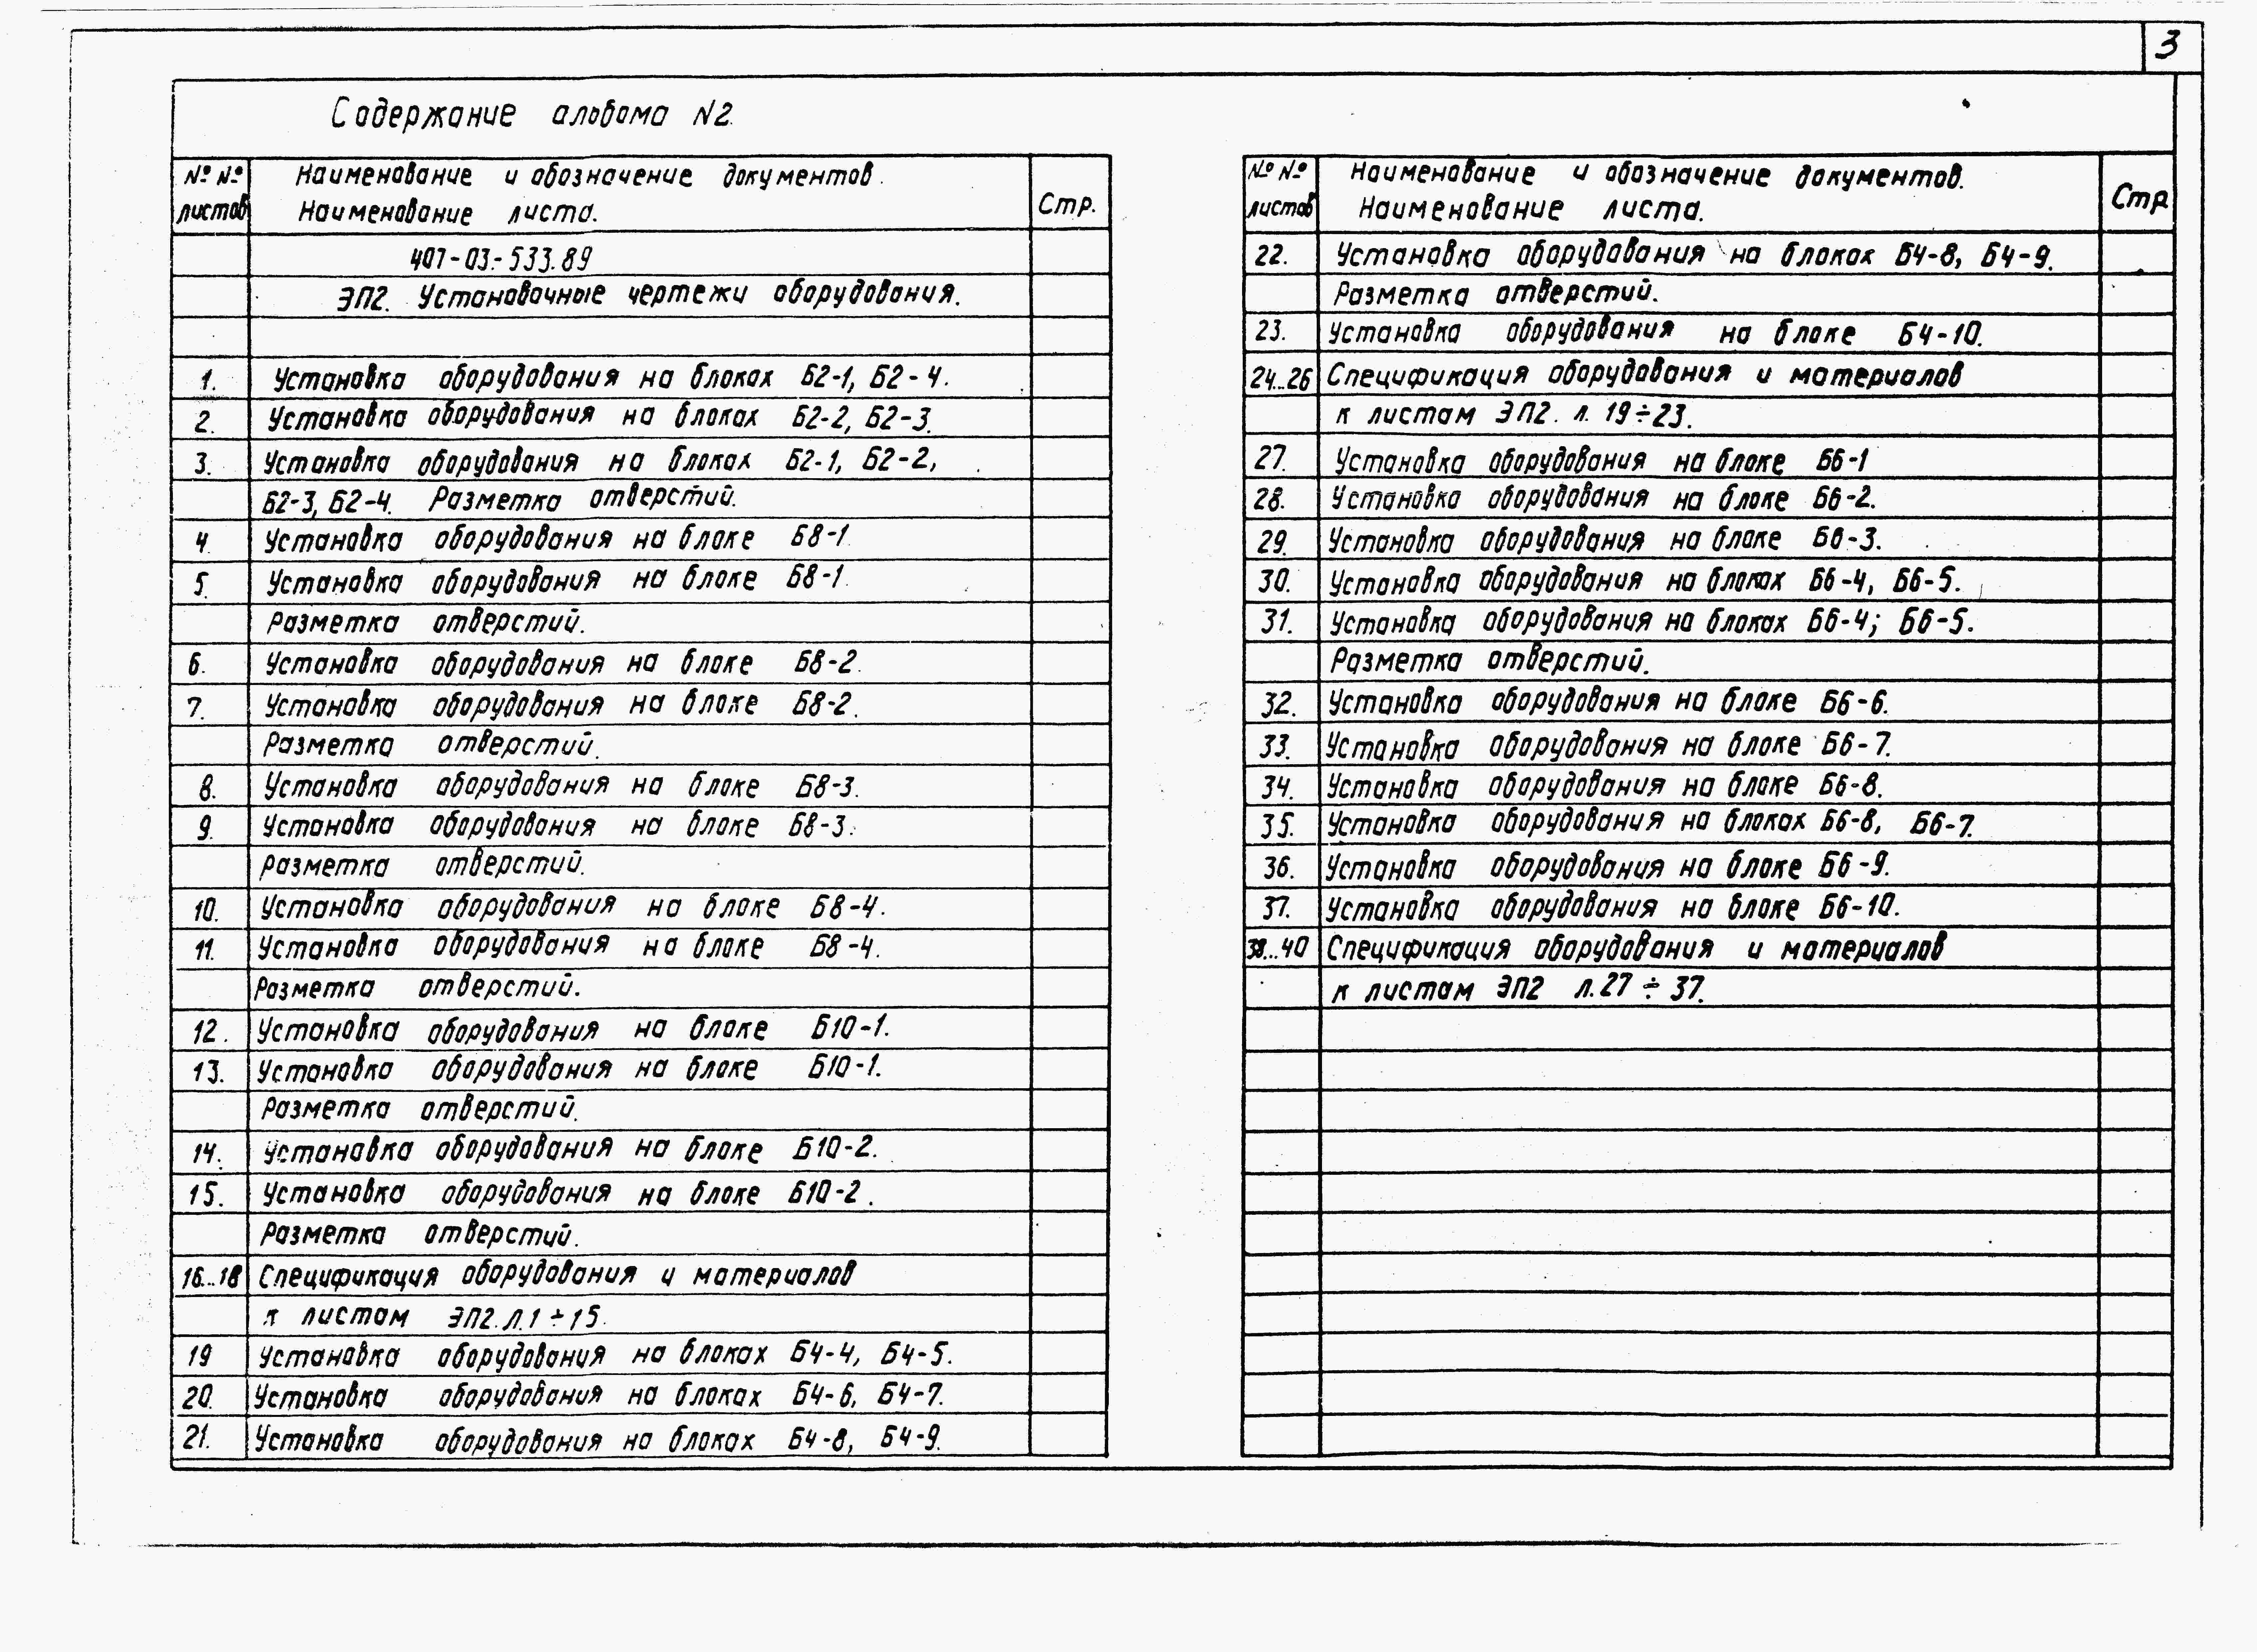 3
Содержание альбома N2.
№ № Наименование и обозначение документов. Стр.
листов Наименование листа.
407-03-533.89
ЭП2. Установочные чертежи оборудования.
1. Установка оборудования на блоках Б2-1, Б2-4.
2. Установка оборудования на блоках Б2-2, Б2-3.
3. Установка оборудования на блоках Б2-1, Б2-2,
Б2-3, Б2-4. Разметка отверстий.
4. Установка оборудования на блоке Б8-1.
5. Установка оборудования на блоке Б8-1.
Разметка отверстий.
6. Установка оборудования на блоке Б8-2.
7. Установка оборудования на блоке Б8-2.
Разметка отверстий.
8. Установка оборудования на блоке Б8-3.
9. Установка оборудования на блоке Б8-3.
Разметка отверстий.
10. Установка оборудования на блоке Б8-4.
11. Установка оборудования на блоке Б8-4.
Разметка отверстий.
12. Установка оборудования на блоке Б10-1.
13. Установка оборудования на блоке Б10-1.
Разметка отверстий.
14. Установка оборудования на блоке Б10-2.
15. Установка оборудования на блоке Б10-2.
Разметка отверстий.
16...18 Спецификация оборудования и материалов
к листам ЭП2. Л.1÷15.
19 Установка оборудования на блоках Б4-4, Б4-5.
20. Установка оборудования на блоках Б4-6, Б4-7.
21. Установка оборудования на блоках Б4-8, Б4-9.
№ № Наименование и обозначение документов. Стр
листов Наименование листа.
22. Установка оборудования на блоках Б4-8, Б4-9.
Разметка отверстий.
23. Установка оборудования на блоке Б4-10.
24...26 Спецификация оборудования и материалов
к листам ЭП2. л. 19÷23.
27. Установка оборудования на блоке Б6-1
28. Установка оборудования на блоке Б6-2.
29. Установка оборудования на блоке Б6-3.
30. Установка оборудования на блоках Б6-4, Б6-5.
31. Установка оборудования на блоках Б6-4; Б6-5.
Разметка отверстий.
32. Установка оборудования на блоке Б6-6.
33. Установка оборудования на блоке Б6-7.
34. Установка оборудования на блоке Б6-8.
35. Установка оборудования на блоках Б6-8, Б6-7.
36. Установка оборудования на блоке Б6-9.
37. Установка оборудования на блоке Б6-10.
38...40 Спецификация оборудования и материалов
к листам ЭП2 л.27÷37.